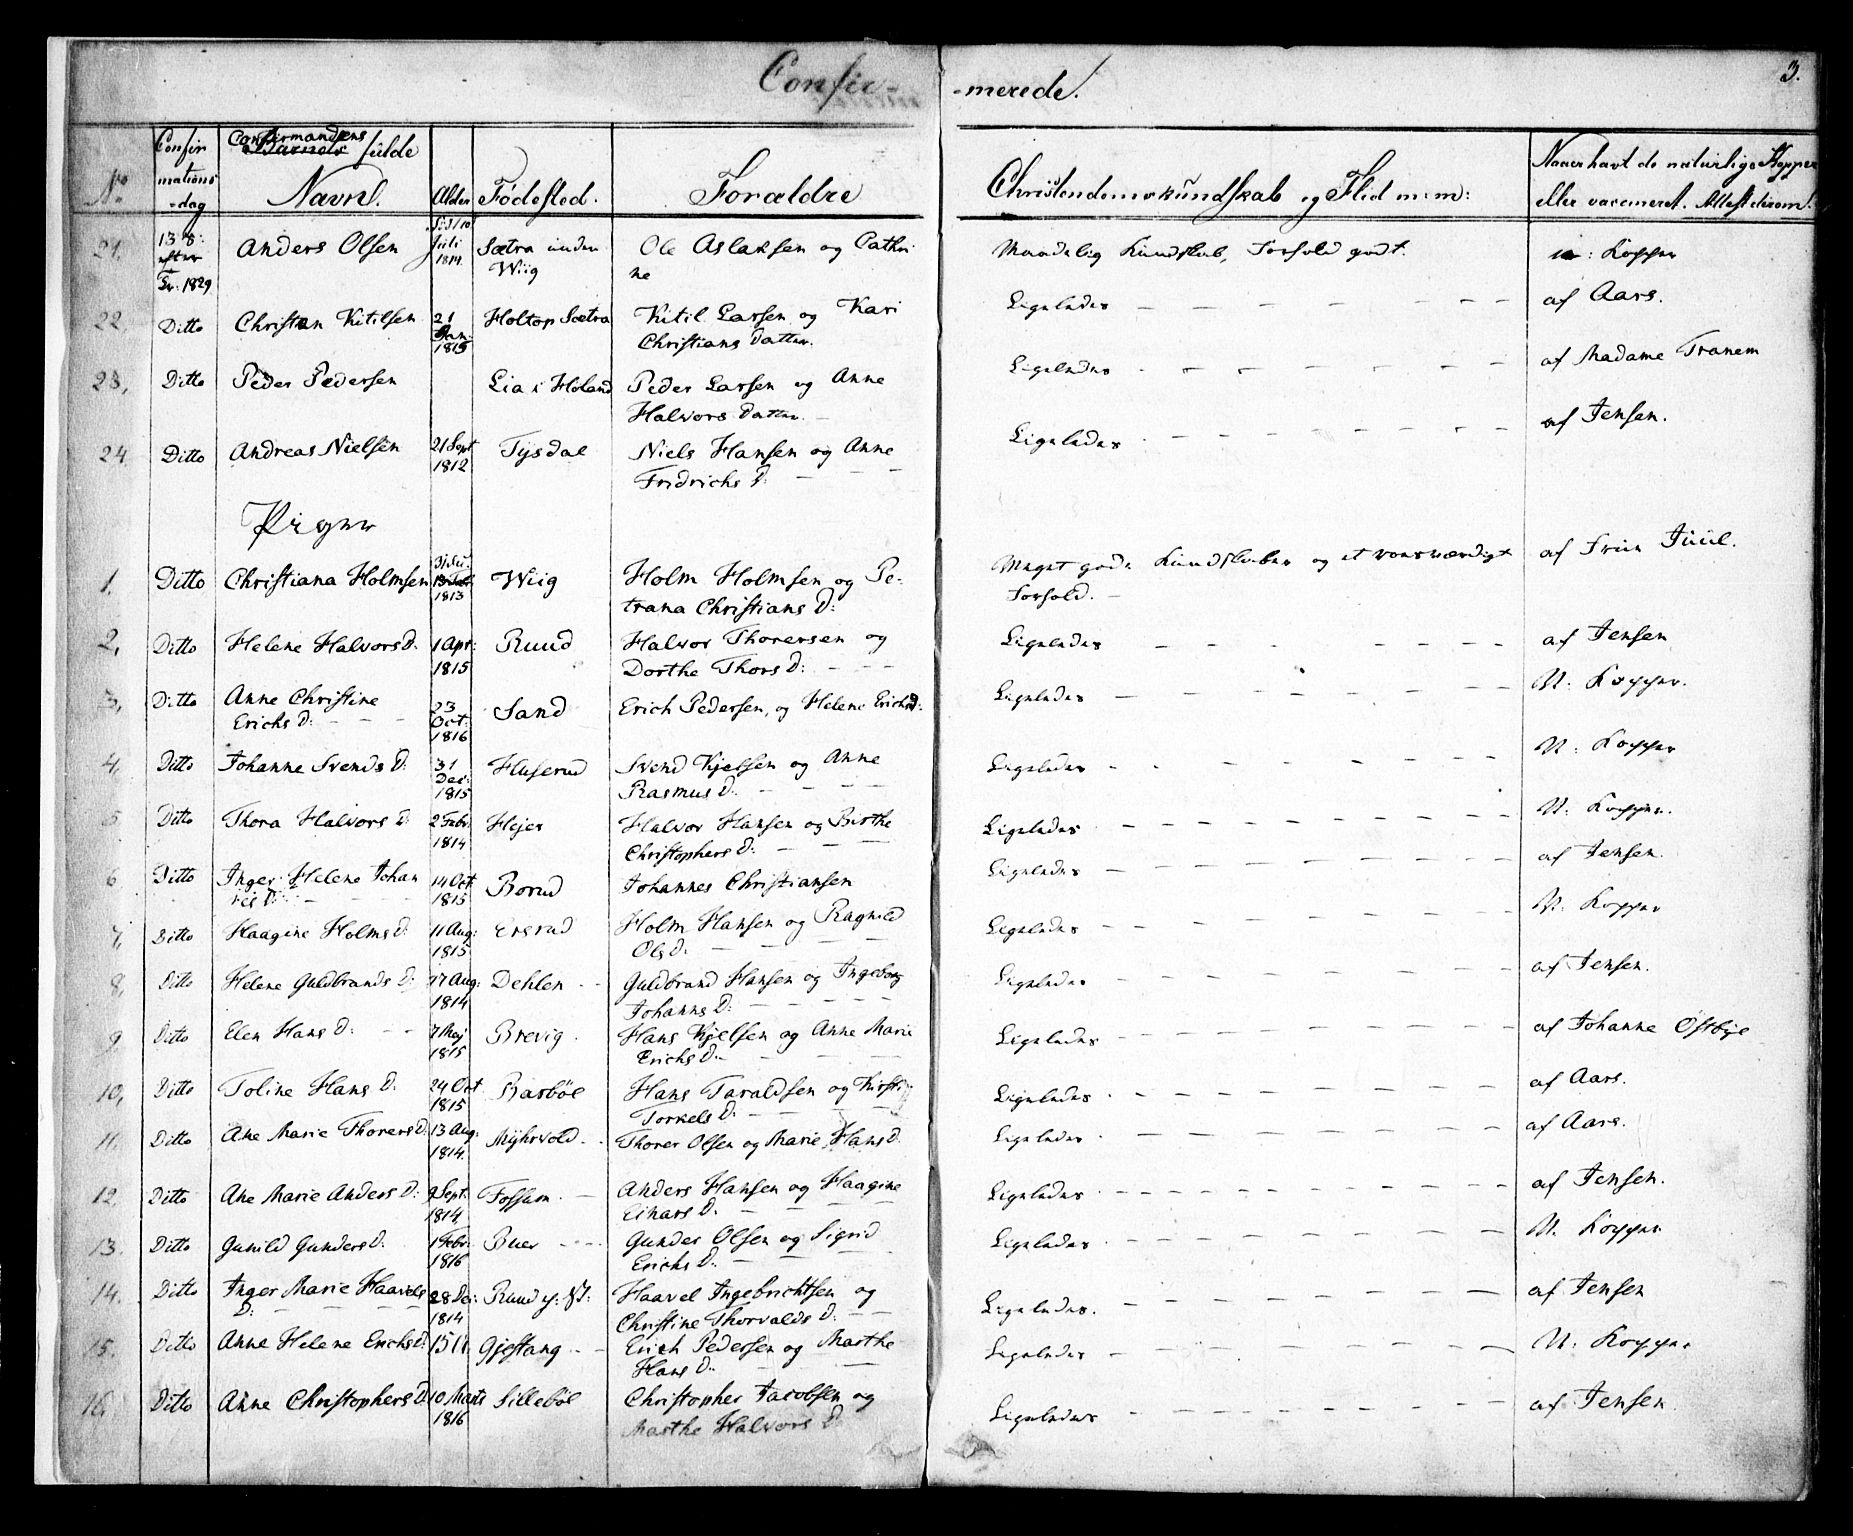 Confir- -merede. 3.
No. Confirmations-dag Confirmandens Barnets fulde Navn. Alder Födested. Forældre Christendomskundskab og Flid m: m: Naar havt de naturlige Kopper eller vaccineret. Attest derom.
21. 13 S: efter Tr: 1829 Anders Olsen Juli 1814. Sætra under Wiig Ole Aslaksen og Cathrine Maadelig Kundskab, Forhold godt. Kopper
22 Ditto Christen Kitilsen 21 Jan. 1815 Holtop Sætra Kitil Larsen og Kari Christians Datter. Ligeledes — — — — — af Aars.
23, Ditto Peder Pedersen Lia i Höland Peder Larsen og Anne Halvors Datter. — Ligeledes — — — — — af Madame Tranem
24. Ditto Andreas Nielsen 21 Sept 1812 Tysdal Niels Hansen og Anne Fridrichs D: — — Ligeledes — — — — — af Jensen.
Piger
1. Ditto Christiana Holmsen 1813 Wiig Holm Holmsen og Petrana Christians D: Meget gode Kundskaber og et roesværdigt Forhold. — af Frue Juul.
2, Ditto Helene Halvors D. 1 Apr: 1815 Ruud Halvor Thorersen og Dorthe Thors D: — — — Ligeledes — — — — — af Jensen
3, Ditto Anne Christine Erichs D: — — 23 Oct: 1816 Sand Erich Pedersen, og Helene Erichs D: Ligeledes — — — — — N: Kopper.
4, Ditto Johanne Svends D: 31 Dec: 1815 Huserud Svend Kjelsen og Anne Rasmus D: — — — Ligeledes — — — — — N: Kopper
5 Ditto Thora Halvors D: 2 Febr: 1814 Hejer Halvor Hansen og Birthe Christophers D: — — — Ligeledes — — — — — N: Kopper.
6 Ditto Inger Helene Johannes D: — — 14 Oct 1815 Borud Johannes Christiansen Ligeledes — — — — — af Jensen.
7, Ditto Haagine Holms D: 11 Aug: 1815 Ersrud Holm Hansen og Ragnild Ols D: — — — Ligeledes — — — — — N: Kopper
8, Ditto Helene Guldbrands D: 17 Aug: 1814 Dehlen — Guldbrand Hansen og Ingeborg Johanns D: — — — Ligeledes — — — — — af Jensen.
9, Ditto Elen Hans D: — — 7 Maj 1815 Brevig. Hans Kjelsen og Anne Marie Erichs D: — — — Ligeledes — — — — — af Johanne Östbye
10, Ditto Toline Hans D: 24 Oct 1815 Barböl Hans Taraldsen og Kirsti Torkels D: — — — Ligeledes — — — — — af Aars.
11. Ditto Ane Marie Thorers D: 13 Aug: 1814. Myhrvold. Thorer Olsen og Marie Hans D. Ligeledes — — — — — af Aars.
12. Ditto Ane Marie Anders D: 9 Sept. 1814 Fossum. — Anders Hansen og Haagine Einars D: — — — Ligeledes — — — — — af Jensen.
13. Ditto Gunild Gunders D: 1 Febr: 1816 Buer — — Gunder Olsen og Sigrid Erichs D: — — — Ligeledes — — — — — N. Kopper
14. Ditto Inger Marie Haavels D: — — 28 De: 1814 Ruud Haavel Ingebrichtsen og Christine Thorvalds D: — — Ligeledes. — — — — — af Jensen
15. Ditto Anne Helene Erichs D: 15 Gjestang — Erich Pedersen og Marthe Hans D: — — — Ligeledes — — — — — N: Kopper
16, Ditto Anne Christophers D: 10 Marts 1816 Silleböl Christopher Jacobsen og Marthe Halvors D. Ligeledes — — — — — af Jensen.